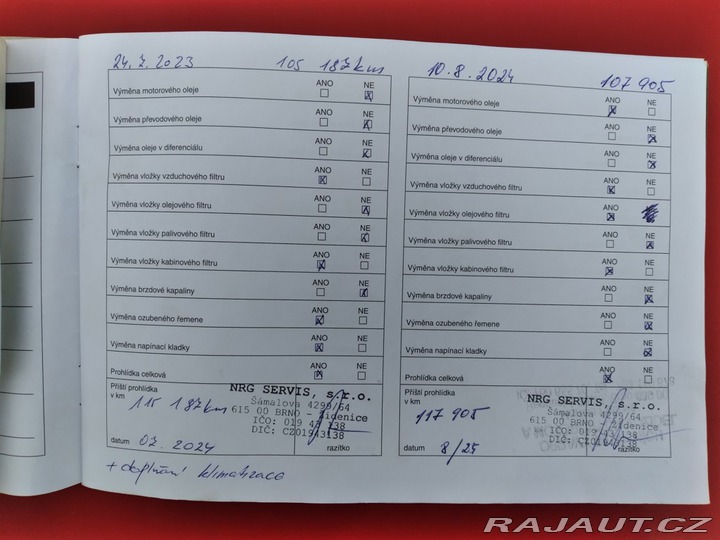 24. 7. 2023 105 187km
ANO NE
Výměna motorového oleje
ANO NE
Výměna převodového oleje
ANO NE
Výměna oleje v diferenciálu
ANO NE
Výměna vložky vzduchového filtru
ANO NE
Výměna vložky olejového filtru
ANO NE
Výměna vložky palivového filtru
ANO NE
Výměna vložky kabinového filtru
ANO NE
Výměna brzdové kapaliny
ANO NE
Výměna ozubeného řemene
ANO NE
Výměna napínací kladky
ANO NE
Prohlídka celková
Příští prohlídka
v km
115 187km
NRG SERVIS, s.r.o.
Šámalova 4299/64
615 00 BRNO - Židenice
IČO: 019 43 138
DIČ: CZ01943138
datum 07. 2024 razítko
+ doplnění klimatizace
10. 8. 2024 107 905
ANO NE
Výměna motorového oleje
ANO NE
Výměna převodového oleje
ANO NE
Výměna oleje v diferenciálu
ANO NE
Výměna vložky vzduchového filtru
ANO NE
Výměna vložky olejového filtru
ANO NE
Výměna vložky palivového filtru
ANO NE
Výměna vložky kabinového filtru
ANO NE
Výměna brzdové kapaliny
ANO NE
Výměna ozubeného řemene
ANO NE
Výměna napínací kladky
ANO NE
Prohlídka celková
Příští prohlídka
v km
117 905
NRG SERVIS, s.r.o.
Šámalova 4299/64
615 00 BRNO - Židenice
IČO: 019 43 138
DIČ: CZ01943138
datum 8/25 razítko
RAJAUT.CZ